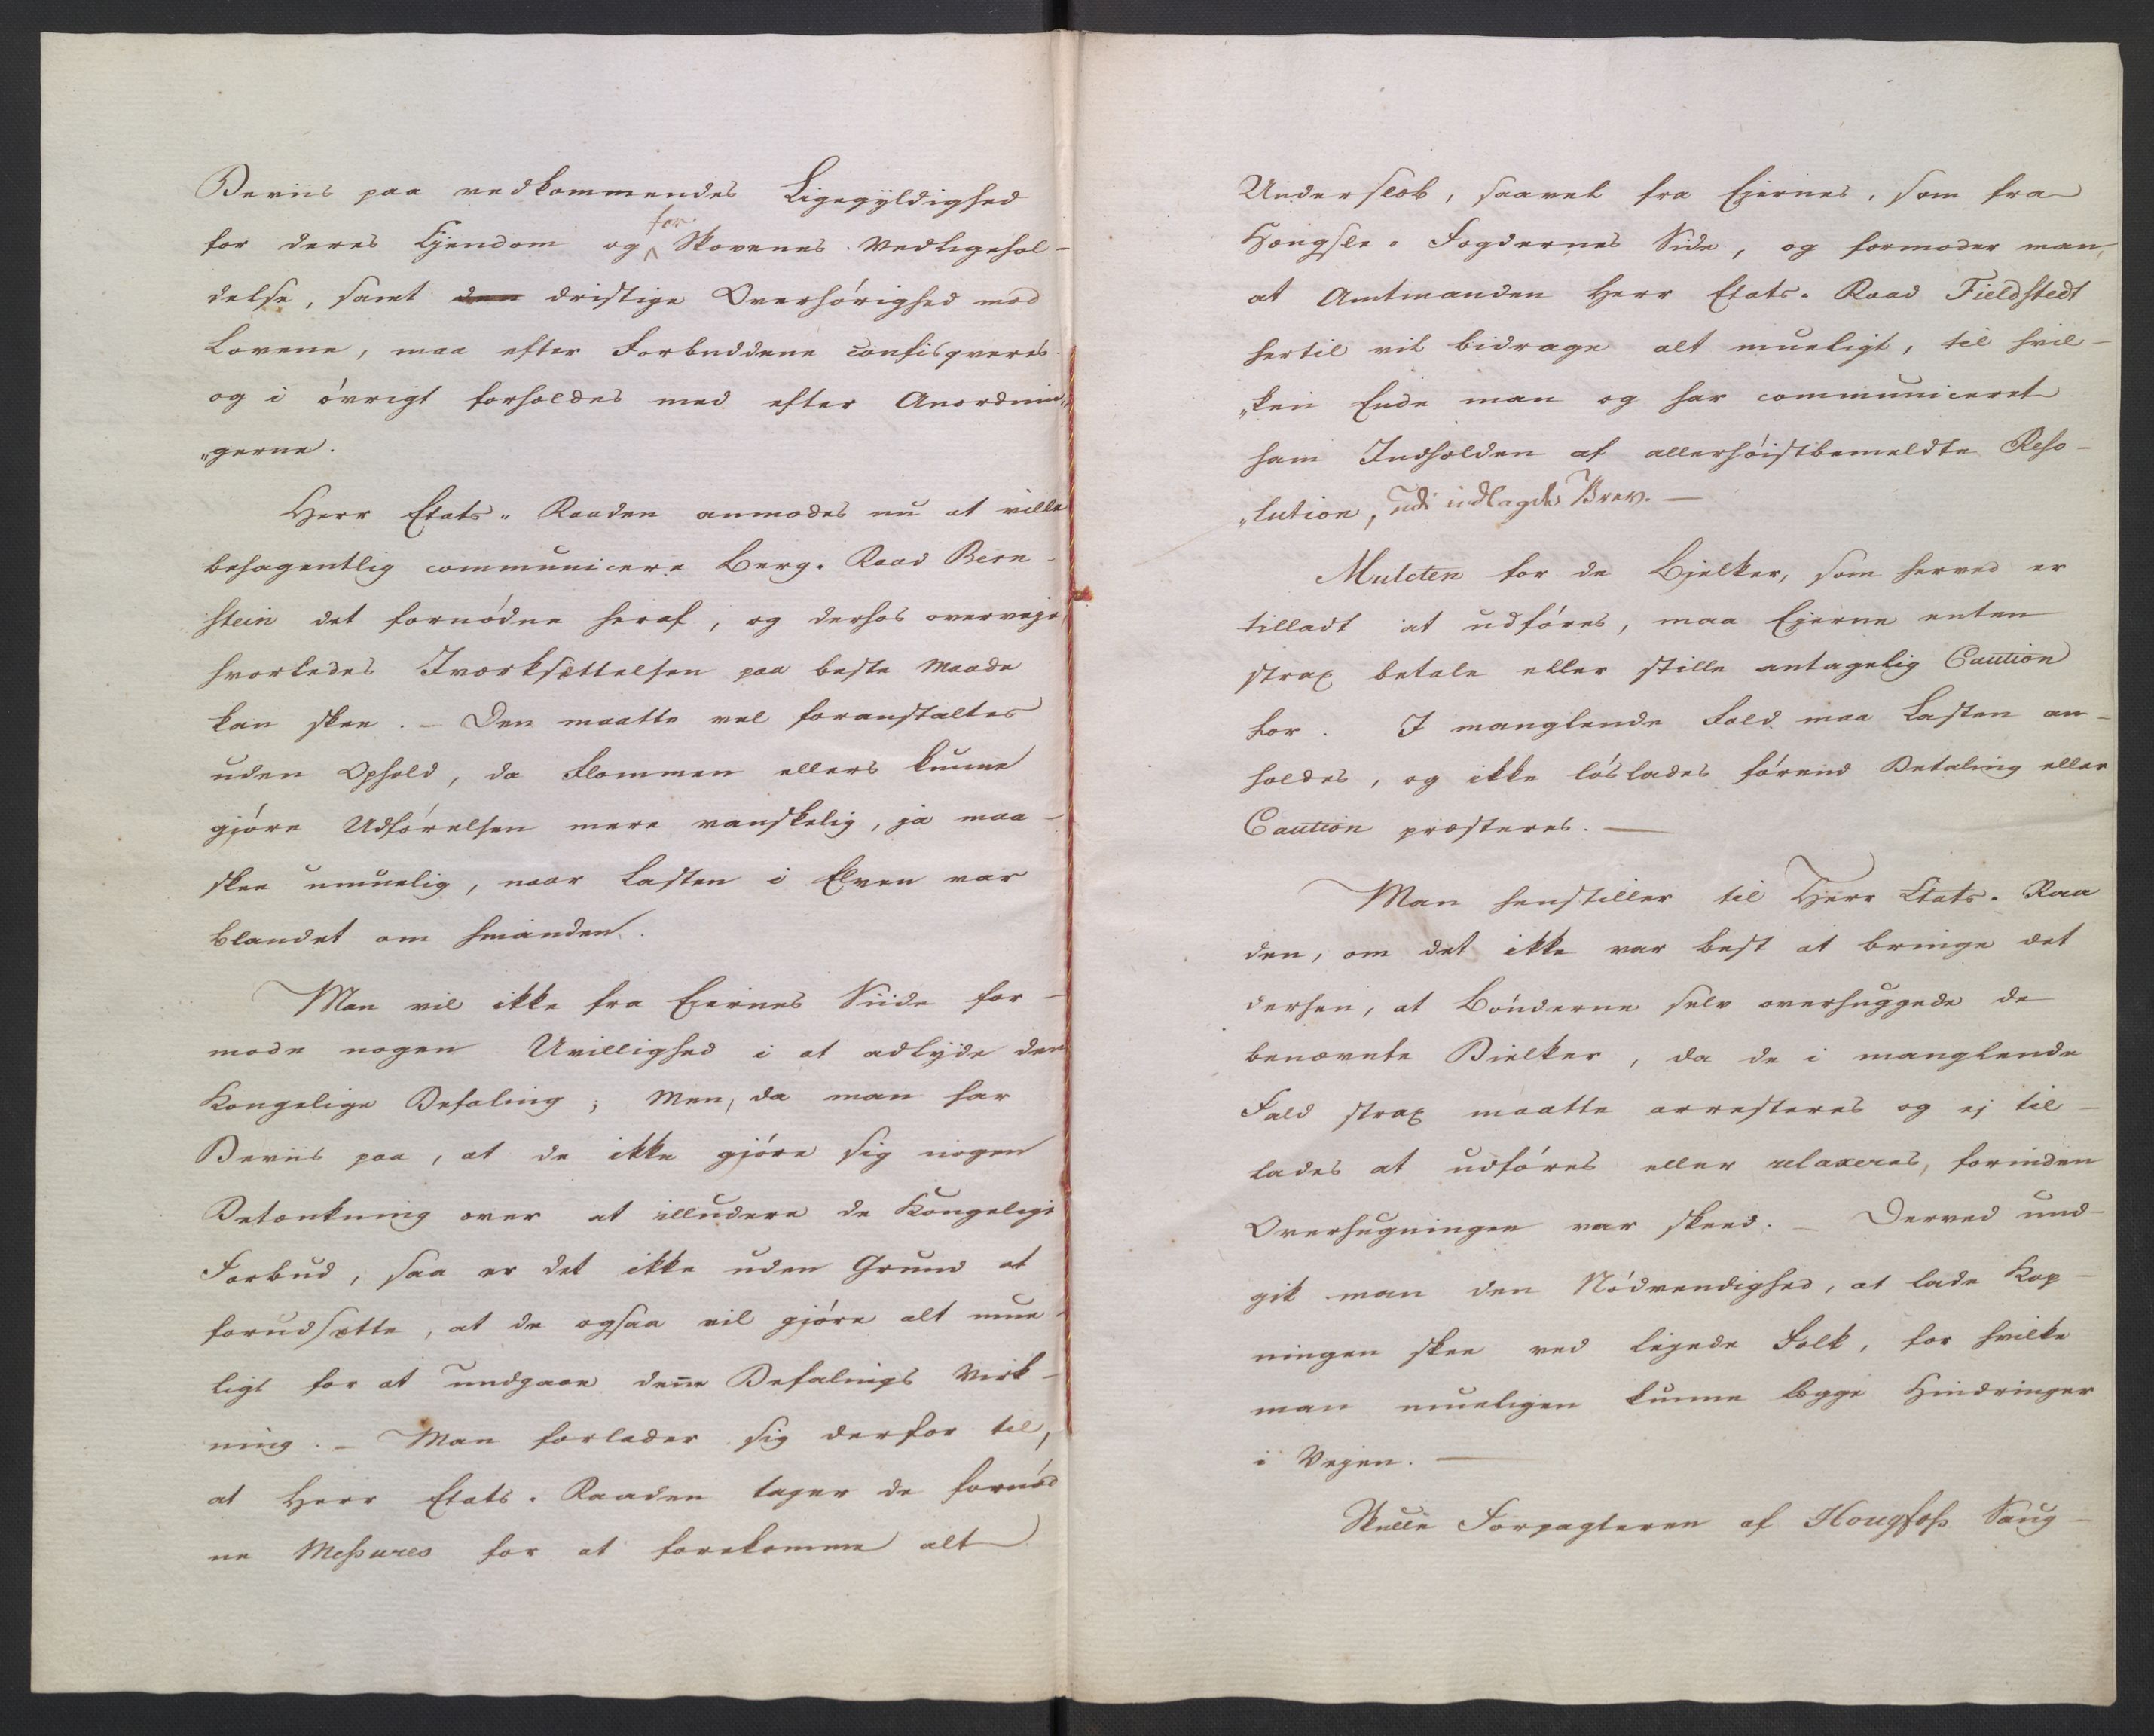 Beviis paa vedkommendes Ligegyldighed
for deres Ejendom og for Skovenes Vedligehol-
delse, samt den dristige Overhørighed mod
Lovene, maa efter Forbuddene confisqveres
og i øvrigt forholdes med efter Anordnin„
„gerne.
Herr Etats„ Raaden anmodes nu at ville
behagentlig communicere Berg. Raad Bern-
stein det fornødne heraf, og derhos overveje
hvorledes Iværksættelsen paa beste Maade
kan skee. – Den maatte vel foranstaltes
uden Ophold, da Flommen ellers kunne
gjøre Udførelsen mere vanskelig, ja maa-
skee umuelig, naar Lasten i Elven var
blandet om hinanden.
Man vil ikke fra Ejernes Siide for-
mode nogen Uvillighed i at adlyde den
Kongelige Befaling; Men, da man har
Beviis paa, at de ikke gjøre sig nogen
Betænkning over at illudere de Kongelige
Forbud, saa er det ikke uden Grund at
forudsætte, at de ogsaa vil gjøre alt mue-
ligt for at undgaae deñe Befalings Virk-
ning. – Man forlader sig derfor til,
at Herr Etats. Raaden tager de fornød
ne Meßures for at forekomme alt
Underslæb, saavel fra Ejernes, som fra
Hængsle. Fogdernes Side, og formoder man,
at Amtmanden Herr Etats. Raad Fieldstedt
hertil vil bidrage alt mueligt, til hvil-
„ken Ende man og har communiceret
ham Indholden af allerhøistbemeldte Reso-
„lution, udi indlagde Brev. –
Mulcten for de Bjelker, som herved er
tilladt at udføres, maa Ejerne enten
strax betale eller stille antagelig Caution
for. I manglende Fald maa Lasten an-
holdes, og ikke løslades førend Betaling eller
Caution præsteres. –
Man henstiller til Herr Etats. Raa
den, om det ikke var best at bringe det
derhen, at Bønderne selv overhuggede de
benævnte Bielker, da de i manglende
Fald strax maatte arresteres og ej til-
lades at udføres eller relaxeres, forinden
Overhugningen var skeed. – Derved und-
gik man den Nødvendighed, at lade Kap-
ningen skee ved lejede Folk, for hvilke
man mueligen kunne lægge Hindringer
i Vejen. –
Skulle Forpagteren af Hougsfoß Saug-